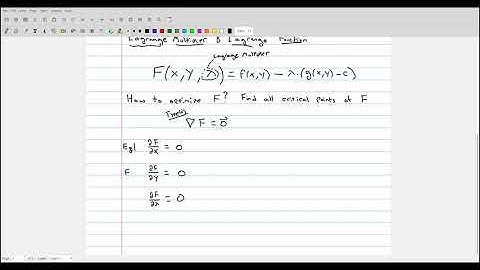 Lagrange Multiplier & Lagrange Function
Lagrange Multiplier
F(x, y, λ) = f(x,y) − λ · (g(x,y) − c)
How to optimize F? Find all critical points of F
∇F = 0⃗
Eg) ∂F/∂x = 0
F ∂F/∂y = 0
∂F/∂λ = 0